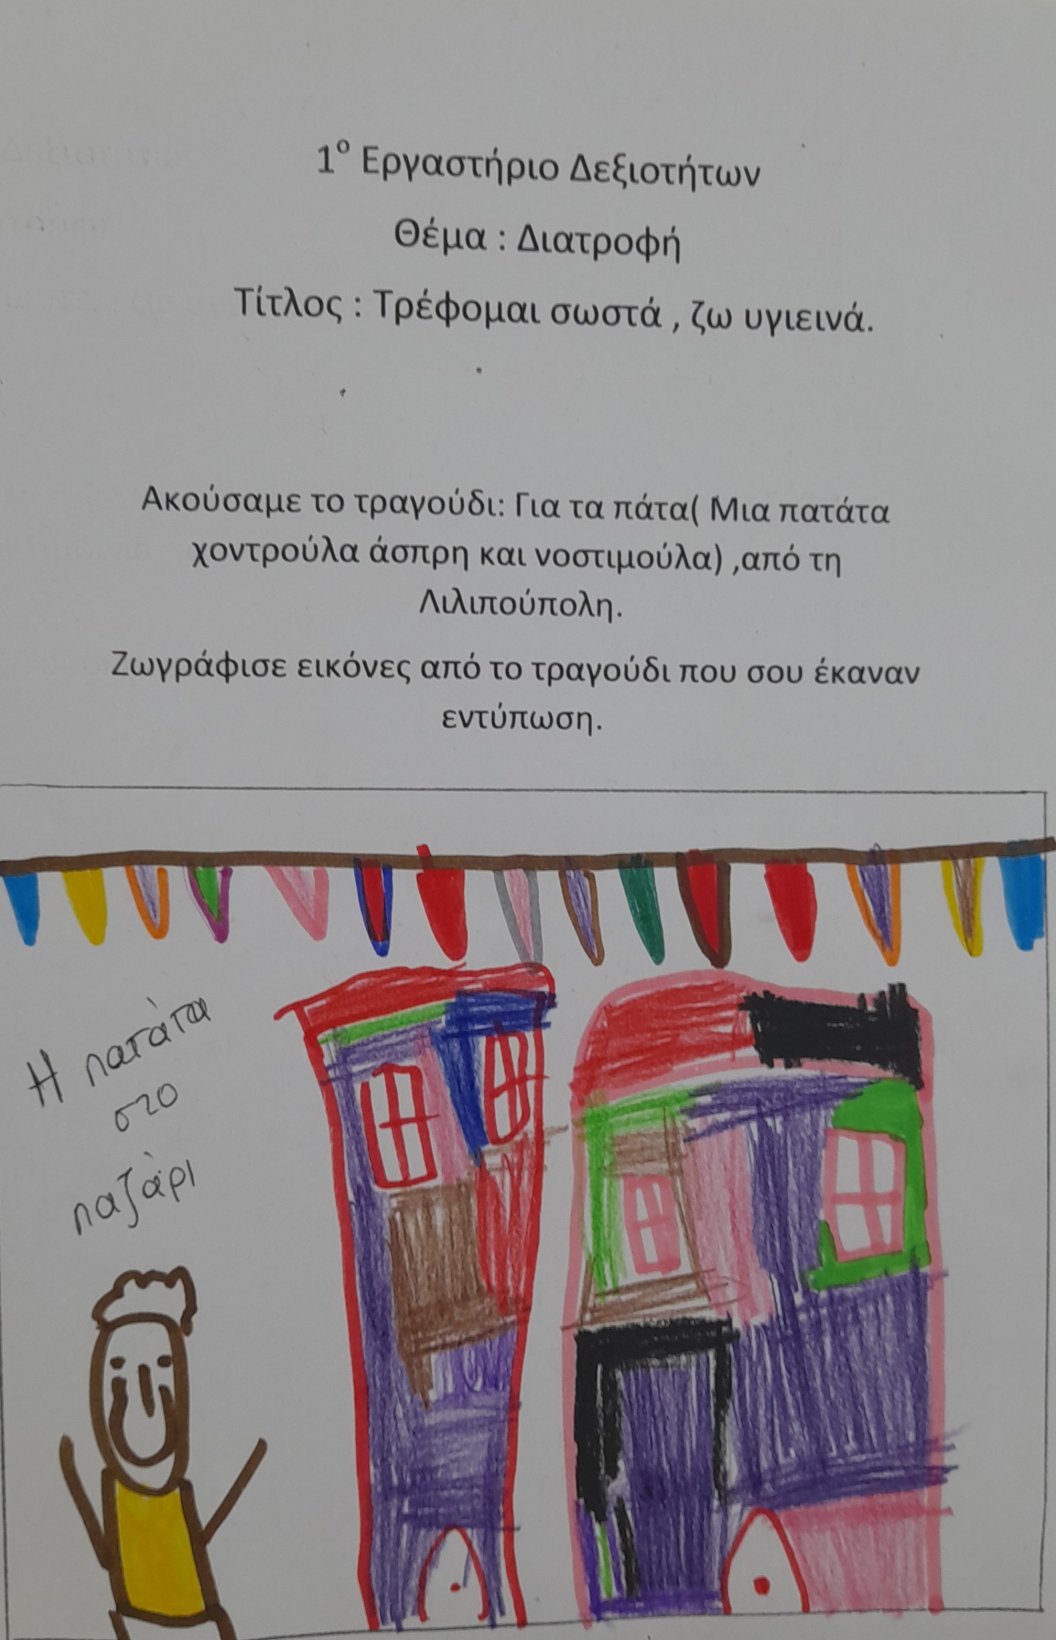 1ο Εργαστήριο Δεξιοτήτων
Θέμα : Διατροφή
Τίτλος : Τρέφομαι σωστά , ζω υγιεινά.
Ακούσαμε το τραγούδι: Για τα πάτα( Μια πατάτα
χοντρούλα άσπρη και νοστιμούλα) ,από τη
Λιλιπούπολη.
Ζωγράφισε εικόνες από το τραγούδι που σου έκαναν
εντύπωση.
Η πατάτα
στο
παζάρι